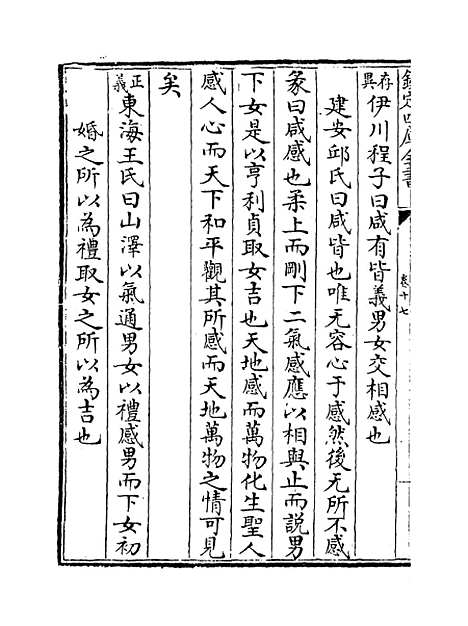 欽定四庫全書
卷十七
存異伊川程子曰咸有皆義男女交相感也
建安邱氏曰咸皆也唯无容心于感然後无所不感
彖曰咸感也柔上而剛下二氣感應以相與止而說男
下女是以亨利貞取女吉也天地感而萬物化生聖人
感人心而天下和平觀其所感而天地萬物之情可見
矣
正義東海王氏曰山澤以氣通男女以禮感男而下女初
婚之所以為禮取女之所以為吉也